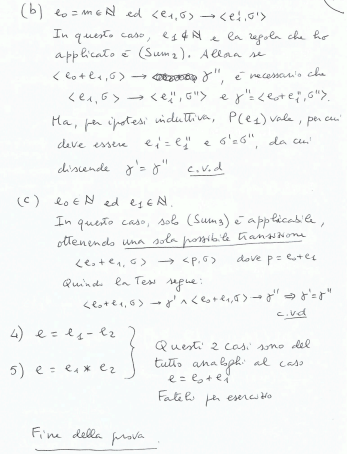 (b) e₀ = m ∈ ℕ ed <e₁,σ> → <e₁',σ'>
In questo caso, e₁ ∉ ℕ e la regola che ho
applicato è (Sum₂). Allora se
<e₀+e₁,σ> → γ'', è necessario che
<e₁,σ> → <e₁'',σ''> e γ''=<e₀+e₁'',σ''>.
Ma, per ipotesi induttiva, P(e₁) vale, per cui
deve essere e₁' = e₁'' e σ'=σ'', da cui
discende γ' = γ'' c.v.d
(c) e₀ ∈ ℕ ed e₁ ∈ ℕ.
In questo caso, solo (Sum₃) è applicabile,
ottenendo una sola possibile transizione
<e₀+e₁,σ> → <p,σ> dove p = e₀+e₁
Quindi la Tesi segue:
<e₀+e₁,σ> → γ' ∧ <e₀+e₁,σ> → γ'' ⇒ γ'=γ''
c.v.d
4) e = e₁ - e₂
5) e = e₁ * e₂
Questi 2 casi sono del
tutto analoghi al caso
e = e₀ + e₁
Fateli per esercizio
Fine della prova.